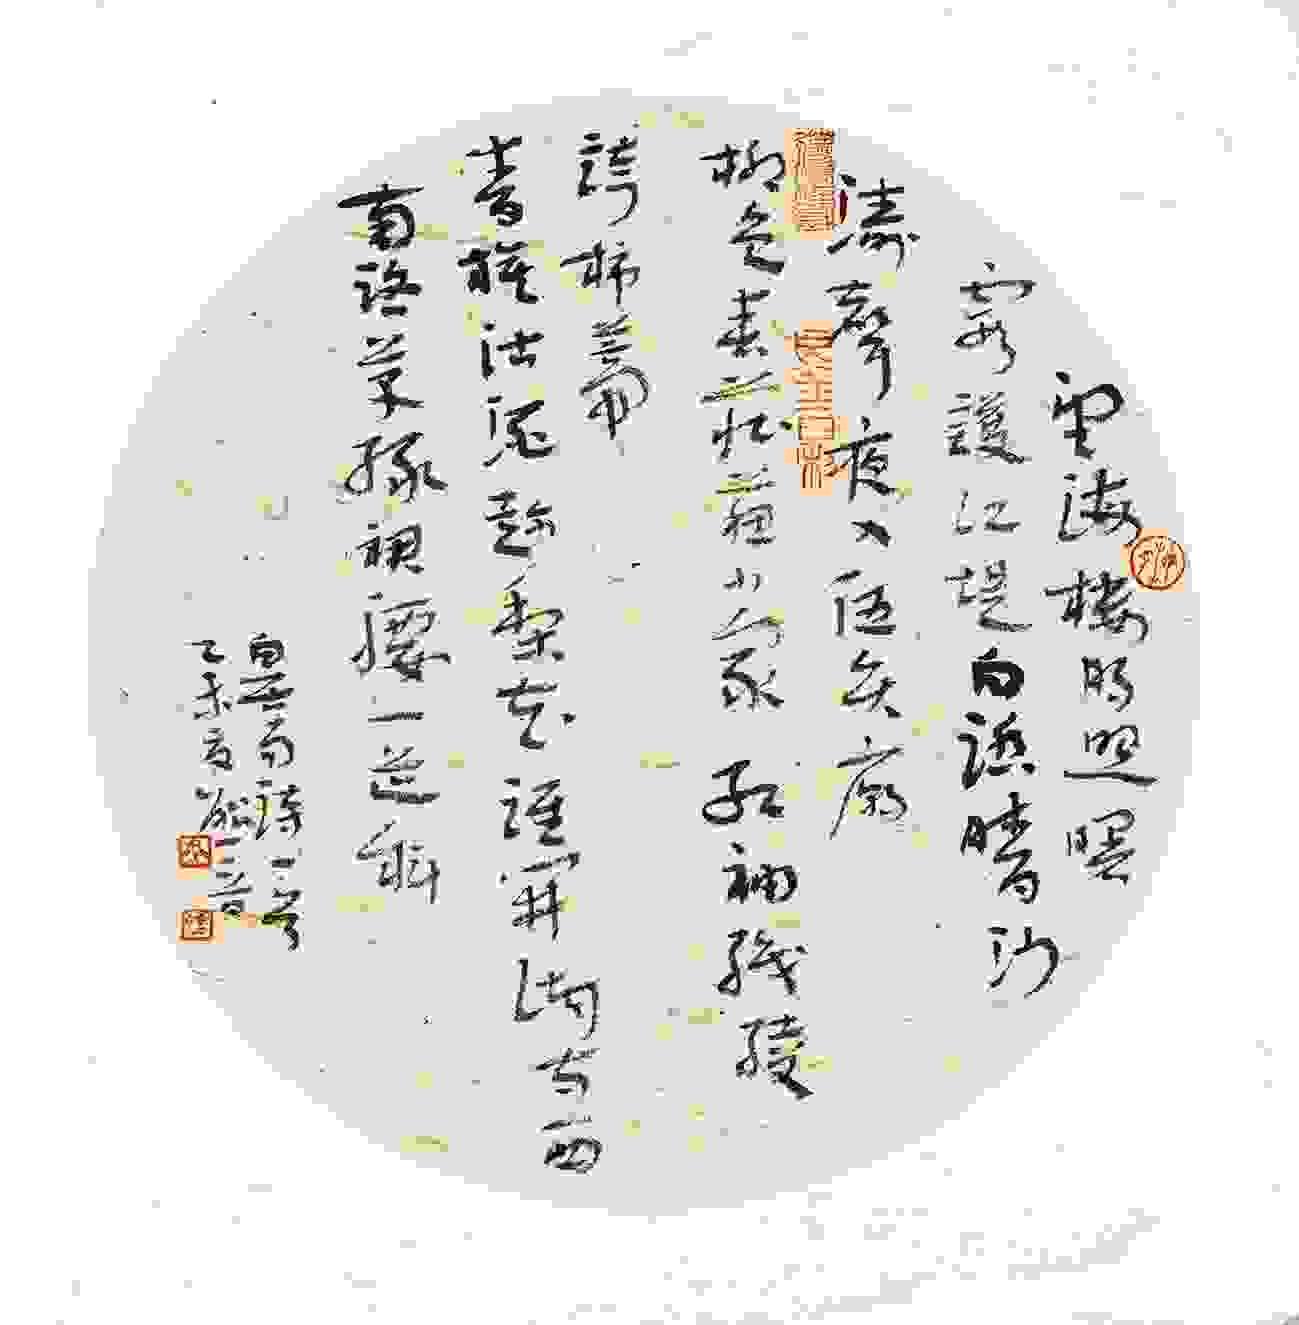 望海樓明照曙
霞護江堤白踏晴沙
濤聲夜入伍員廟
柳色春藏蘇小家紅袖織綾
誇柿蒂
青旗沽酒趁梨花誰開湖寺西
南路草綠裙腰一道斜
白居易詩一首
乙未夏